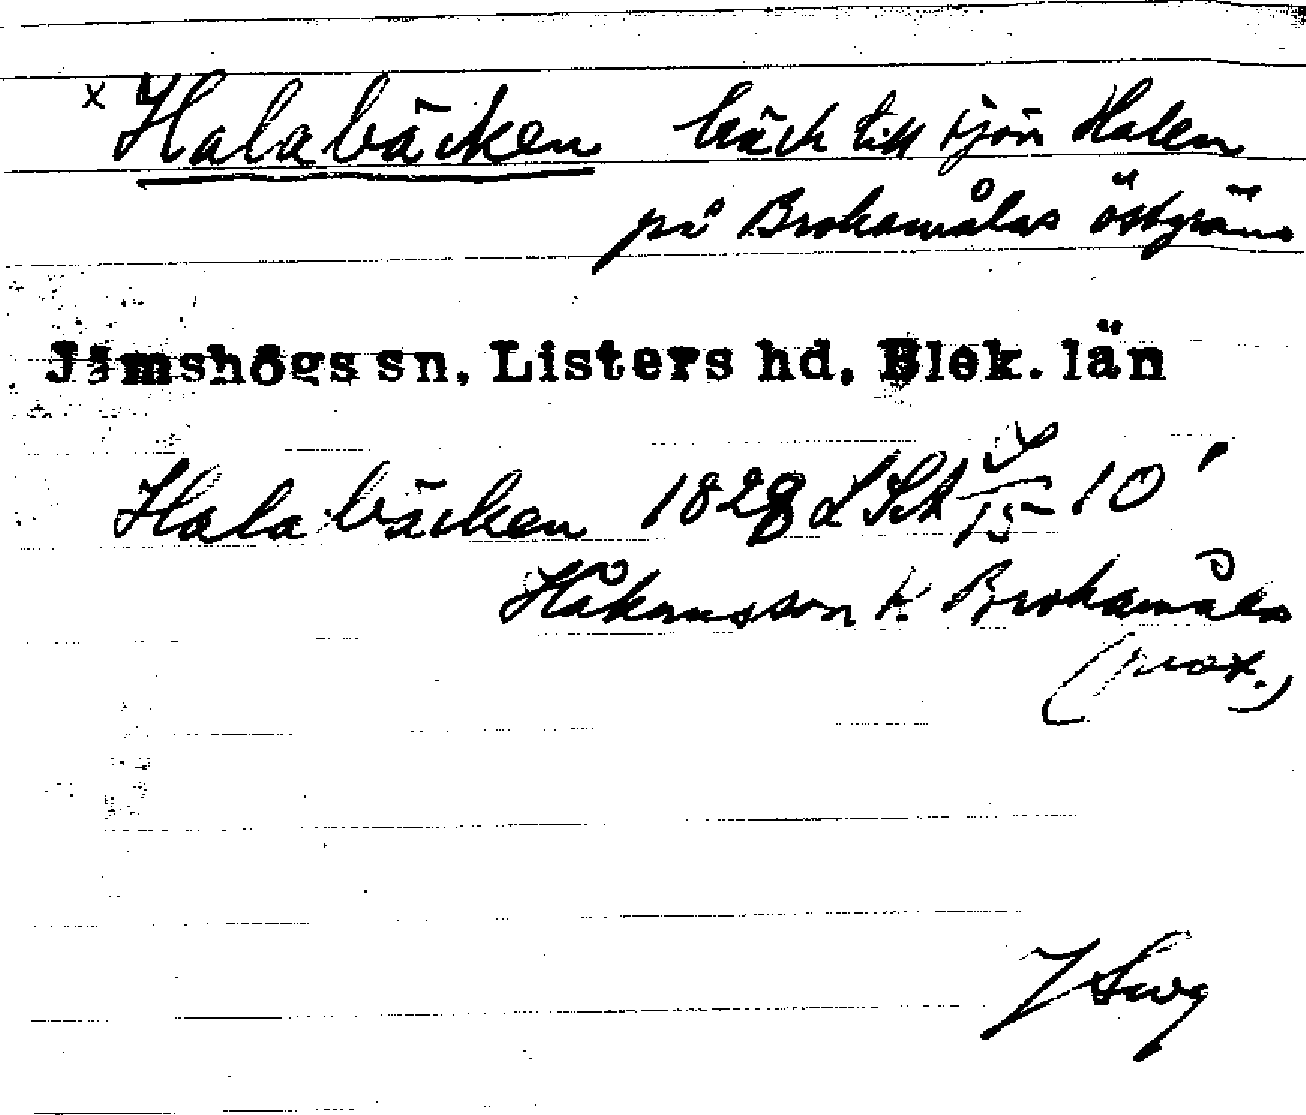 x Halabäcken bäck till sjön Halen
på Brokamålas östgräns
Jämshögs sn, Listers hd, Blek. län
Halabäcken 1828 LSA 10'
Håkansson k. Brokamåla
(prox.)